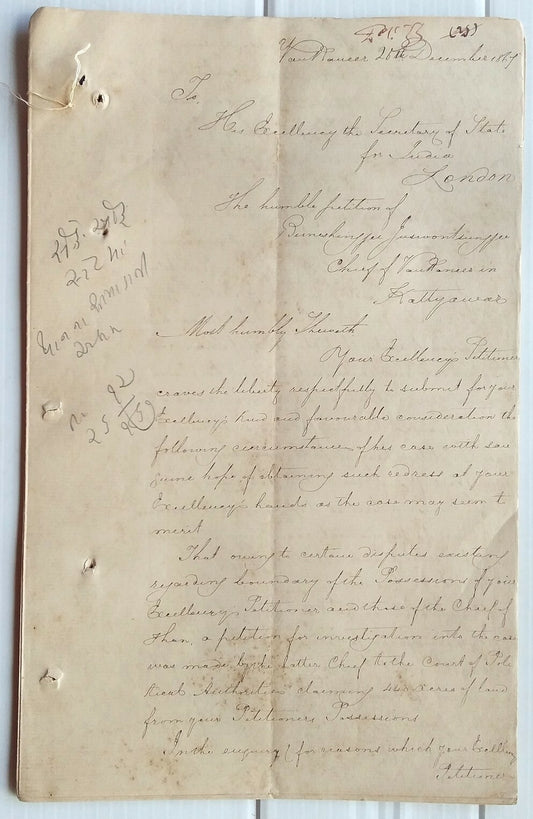 (25)
VanKaneer 20th December 1867
To,
His Excellency the Secretary of State
for India
London
The humble petition of
Buneshingjee Juswontsingjee
Chief of VanKaneer in
Kattyawar
Most humbly Sheweth
Your Excellency's Petitioner
craves the liberty respectfully to submit for your
Excellency's kind and favourable consideration the
following circumstances of his case with san
guine hope of obtaining such redress at your
Excellency's hands as the case may seem to
merit
That owing to certain disputes existing
regarding boundary of the Possessions of your
Excellency's Petitioner and those of the Chief of
Than, a petition for investigation into the case
was made by the latter Chief to the Court of Poli
tical Authorities claiming acres of land
from your Petitioners Possessions
In the enquiry (for reasons which your Excellency's
Petitioner